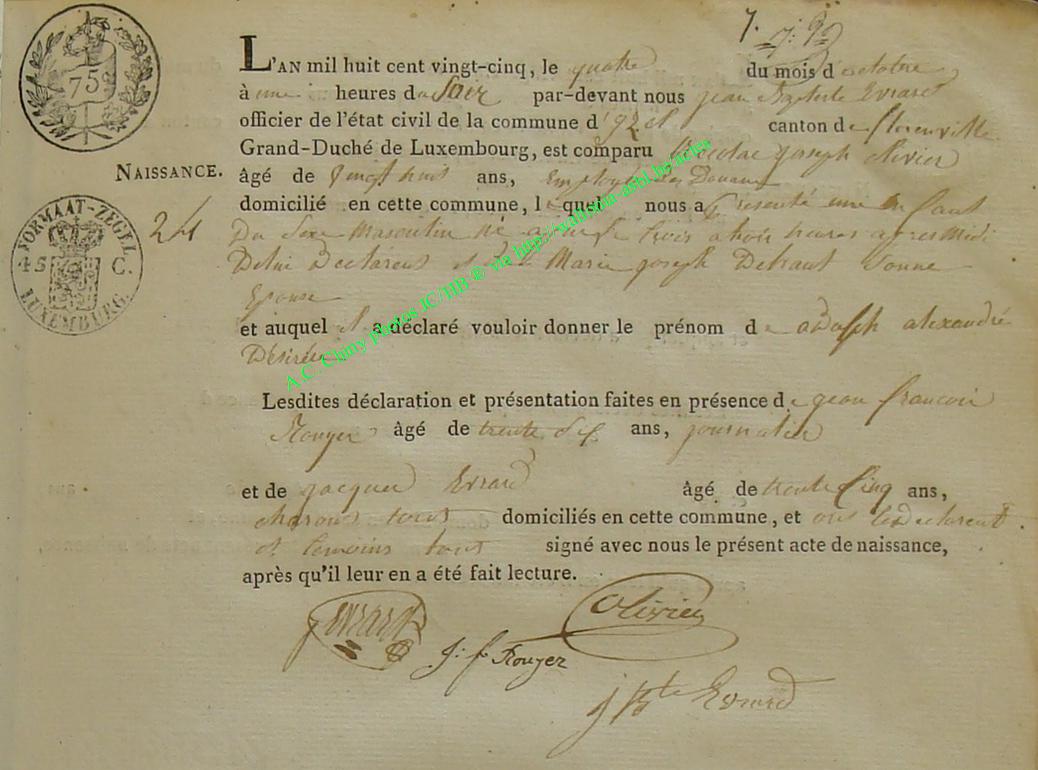 7.
75
L'AN mil huit cent vingt-cinq, le quatre du mois d'octobre
à une heures du Soir par-devant nous jean Baptiste Evrard
officier de l'état civil de la commune d' canton de florenville
Grand-Duché de Luxembourg, est comparu Nicolas joseph olivier
NAISSANCE.
âgé de vingt huit ans, Employé des Douanes
domicilié en cette commune, lequel nous a présenté une enfant
NORMAAT-ZEGEL
45 C.
LUXEMBURG.
24
Du Sexe Masculin né le trois a trois heures apres Midi
De lui Declarent et de Marie joseph
Epouse
et auquel il a déclaré vouloir donner le prénom de adolph alexandre
Désirée
Lesdites déclaration et présentation faites en présence de jean francois
Rouyer âgé de trente Six ans, journalier
et de jacques Evrard âgé de trente Cinq ans,
charons tous domiciliés en cette commune, et ons les declarent
et temoins tous signé avec nous le présent acte de naissance,
après qu'il leur en a été fait lecture.
jevrard
Olivier
j: f Rouyer
j Bte Evrard
A.C. Chiny photos IC/HB ® via http://wallonia-asbl.be/actes